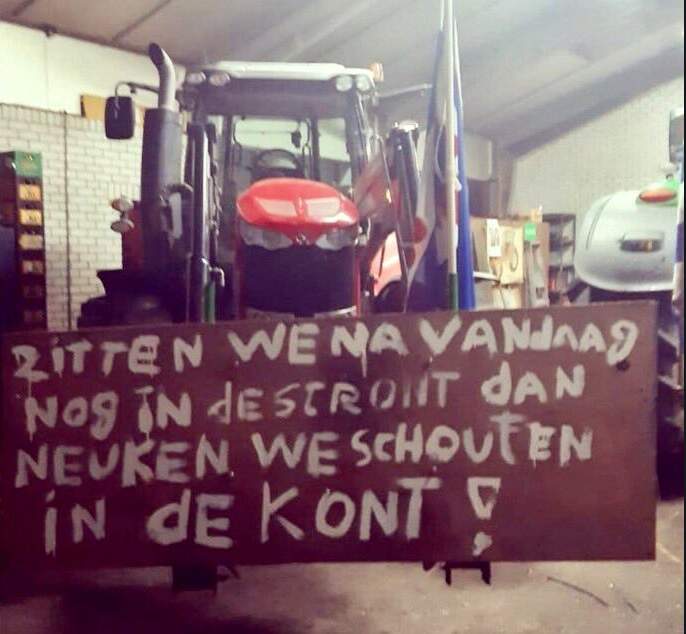 ZITTEN WE NA VANdAAg
NOg iN dE STRONT dAN
NEUKEN WE SCHOUTEN
iN dE KONT !